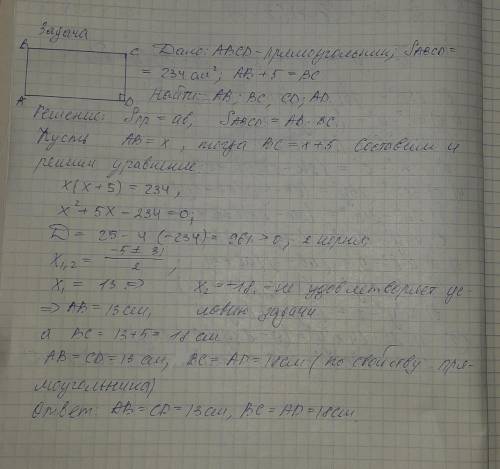 Задача
B C Дано: ABCD-прямоугольник; SABCD =
= 234 см²; AB + 5 = BC
A D Найти: AB; BC, CD; AD.
Решение: Sпр = ab, SABCD = AB · BC
Пусть AB = x, тогда BC = x+5. Составим и
решим уравнение
x(x+5) = 234,
x² + 5x - 234 = 0;
D = 25 - 4 · (-234) = 961 > 0, 2 корня
x1,2 = (-5 ± 31)/2,
x1 = 13 ⇒ x2 = -18. - не удовлетворяет ус-
⇒ AB = 13 см, ловию задачи
а BC = 13+5 = 18 см
AB = CD = 13 см, BC = AD = 18см (по свойству пря-
моугольника)
Ответ: AB = CD = 13 см, BC = AD = 18см